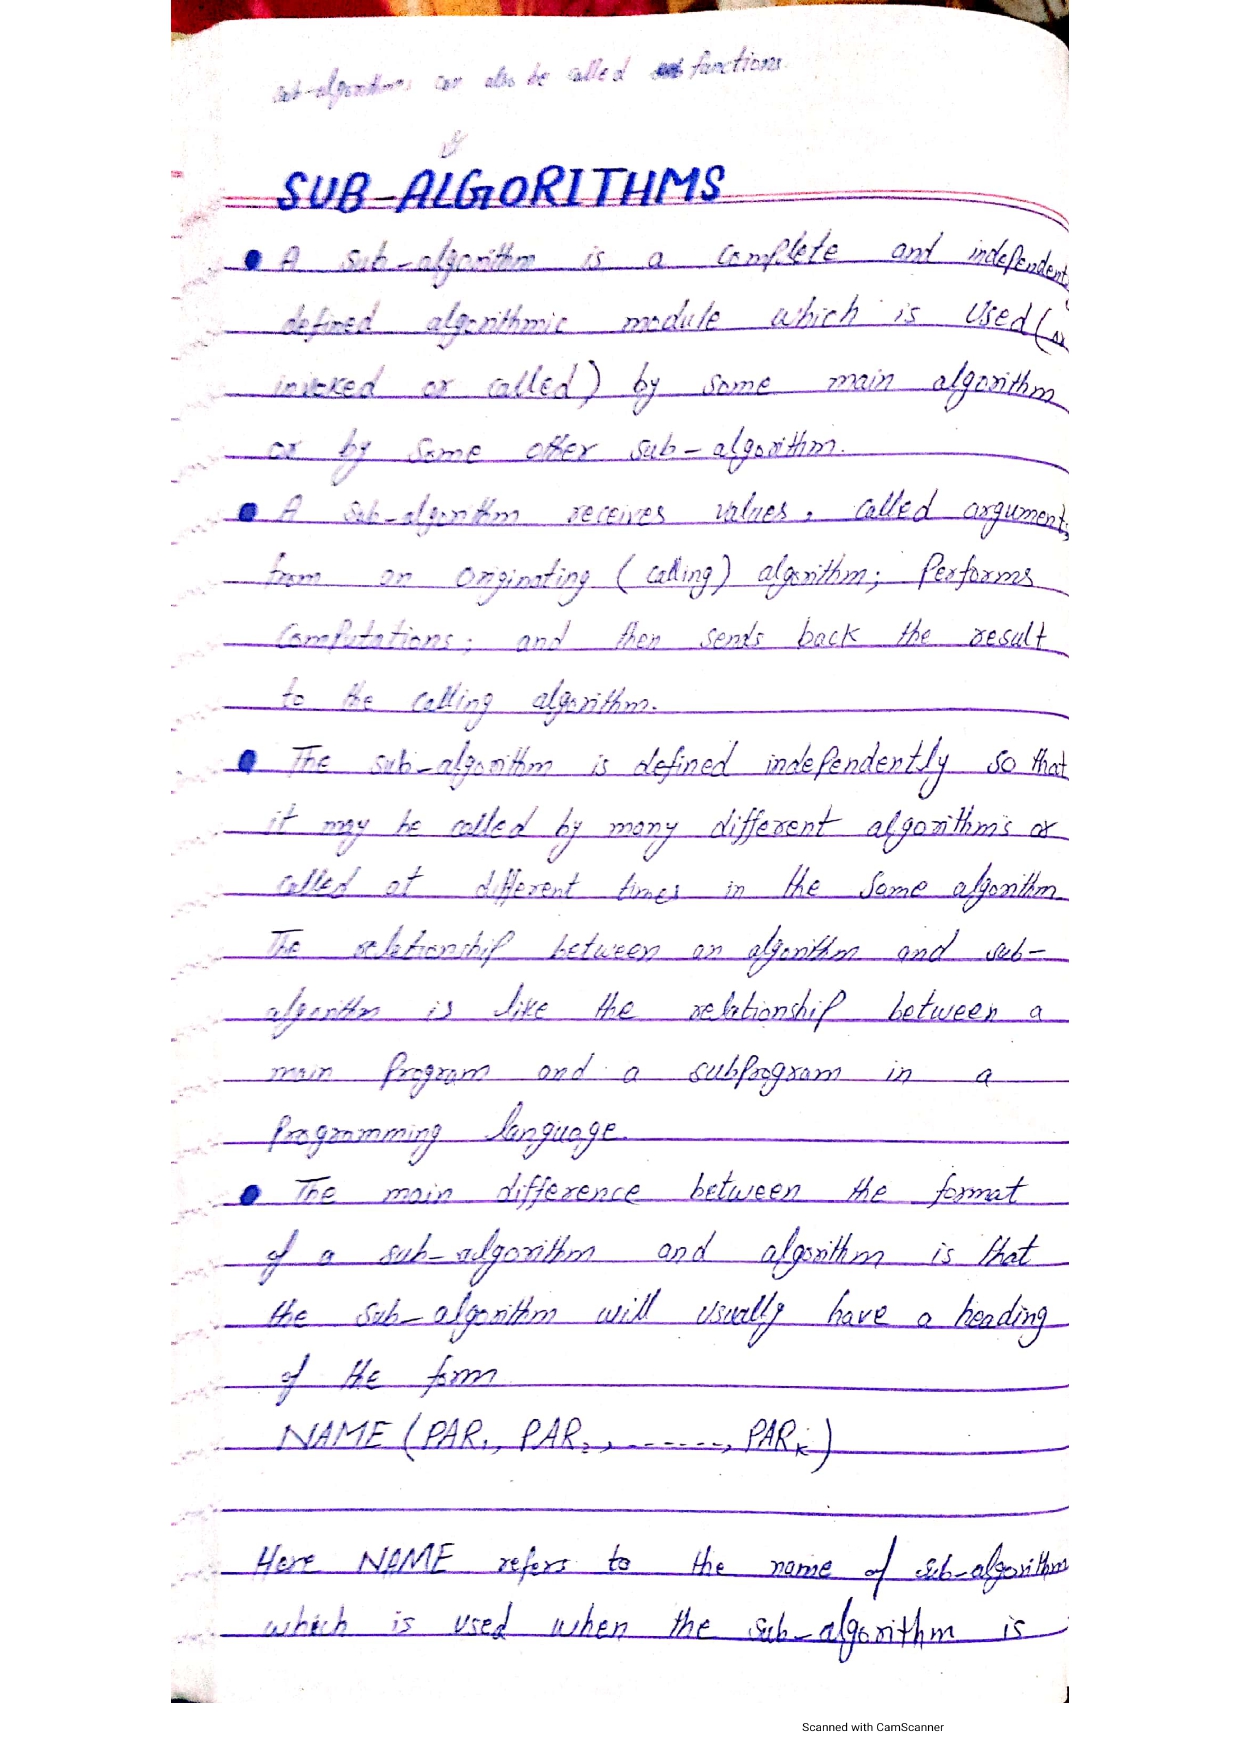 sub-algorithms can also be called functions.
SUB-ALGORITHMS
A sub-algorithm is a complete and independent
defined algorithmic module which is used (
invoked or called) by some main algorithm
or by some other sub-algorithm.
A sub-algorithm receives values, called arguments,
from an originating (calling) algorithm; Performs
Computations; and then sends back the result
to the calling algorithm.
The sub-algorithm is defined independently so that
it may be called by many different algorithms or
called at different times in the same algorithm
The relationship between an algorithm and sub-
algorithm is like the relationship between a
main Program and a subprogram in a
Programming language.
The main difference between the format
of a sub-algorithm and algorithm is that
the sub-algorithm will usually have a heading
of the form
NAME (PAR₁, PAR₂, ......, PARₖ)
Here NAME refers to the name of sub-algorithm
which is used when the sub-algorithm is
Scanned with CamScanner